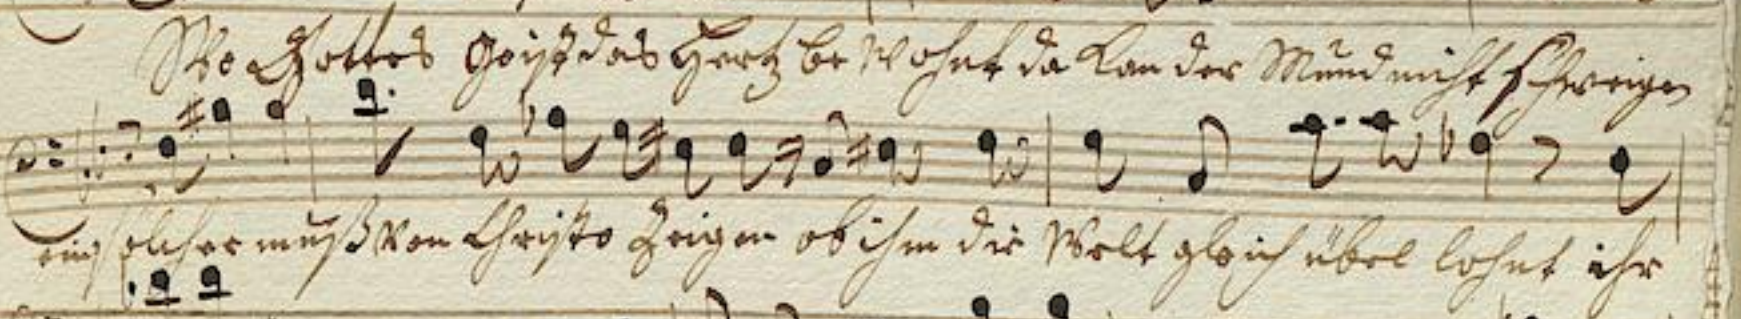 Wo Gottes Geist das Hertz be wohnt da kan der Mund nicht schweigen
ein solcher muß von Christo Zeigen ob ihm die Welt gleich übel lohnt ihr